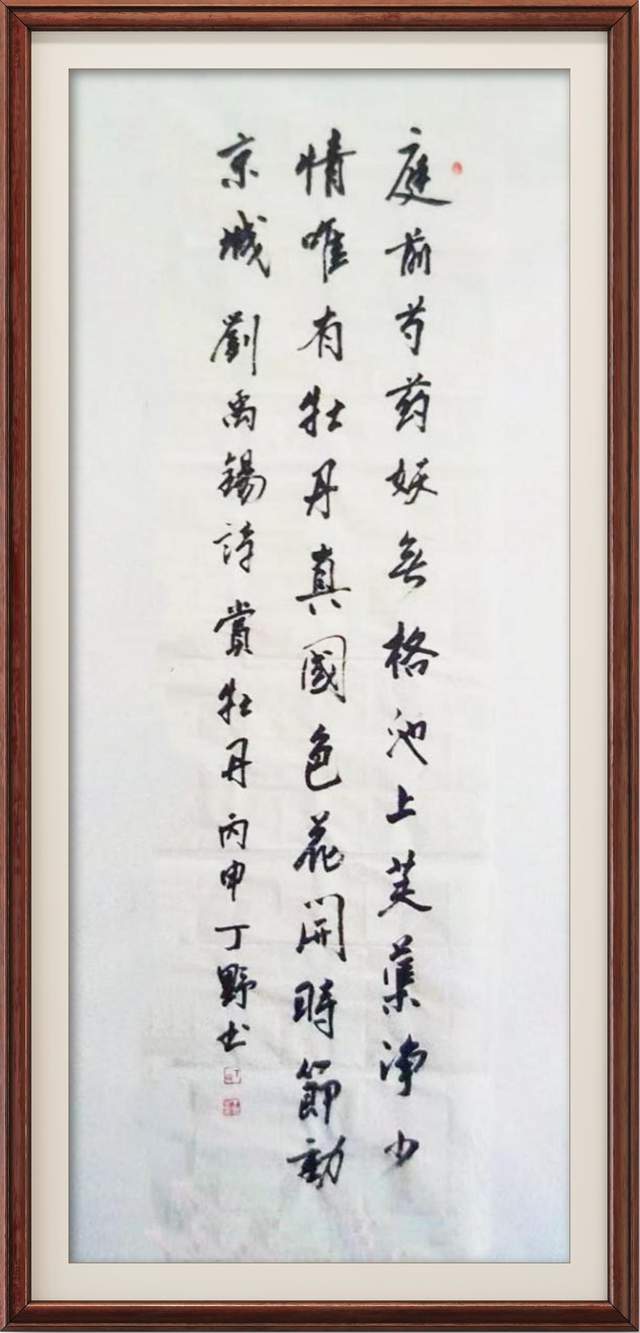 庭前芍药妖無格池上芙蕖净少
情唯有牡丹真國色花開時節動
京城劉禹錫詩賞牡丹丙申丁野书